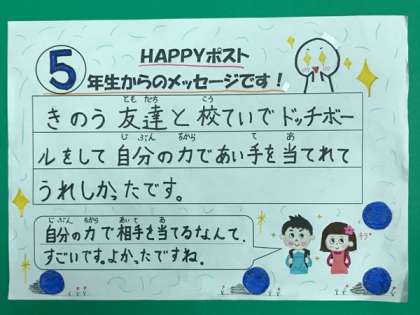 HAPPYポスト
5年生からのメッセージです！
きのう友達と校ていでドッチボー
ルをして自分の力であい手を当てれて
うれしかったです。
自分の力で相手を当てるなんて、
すごいです。よかったですね。